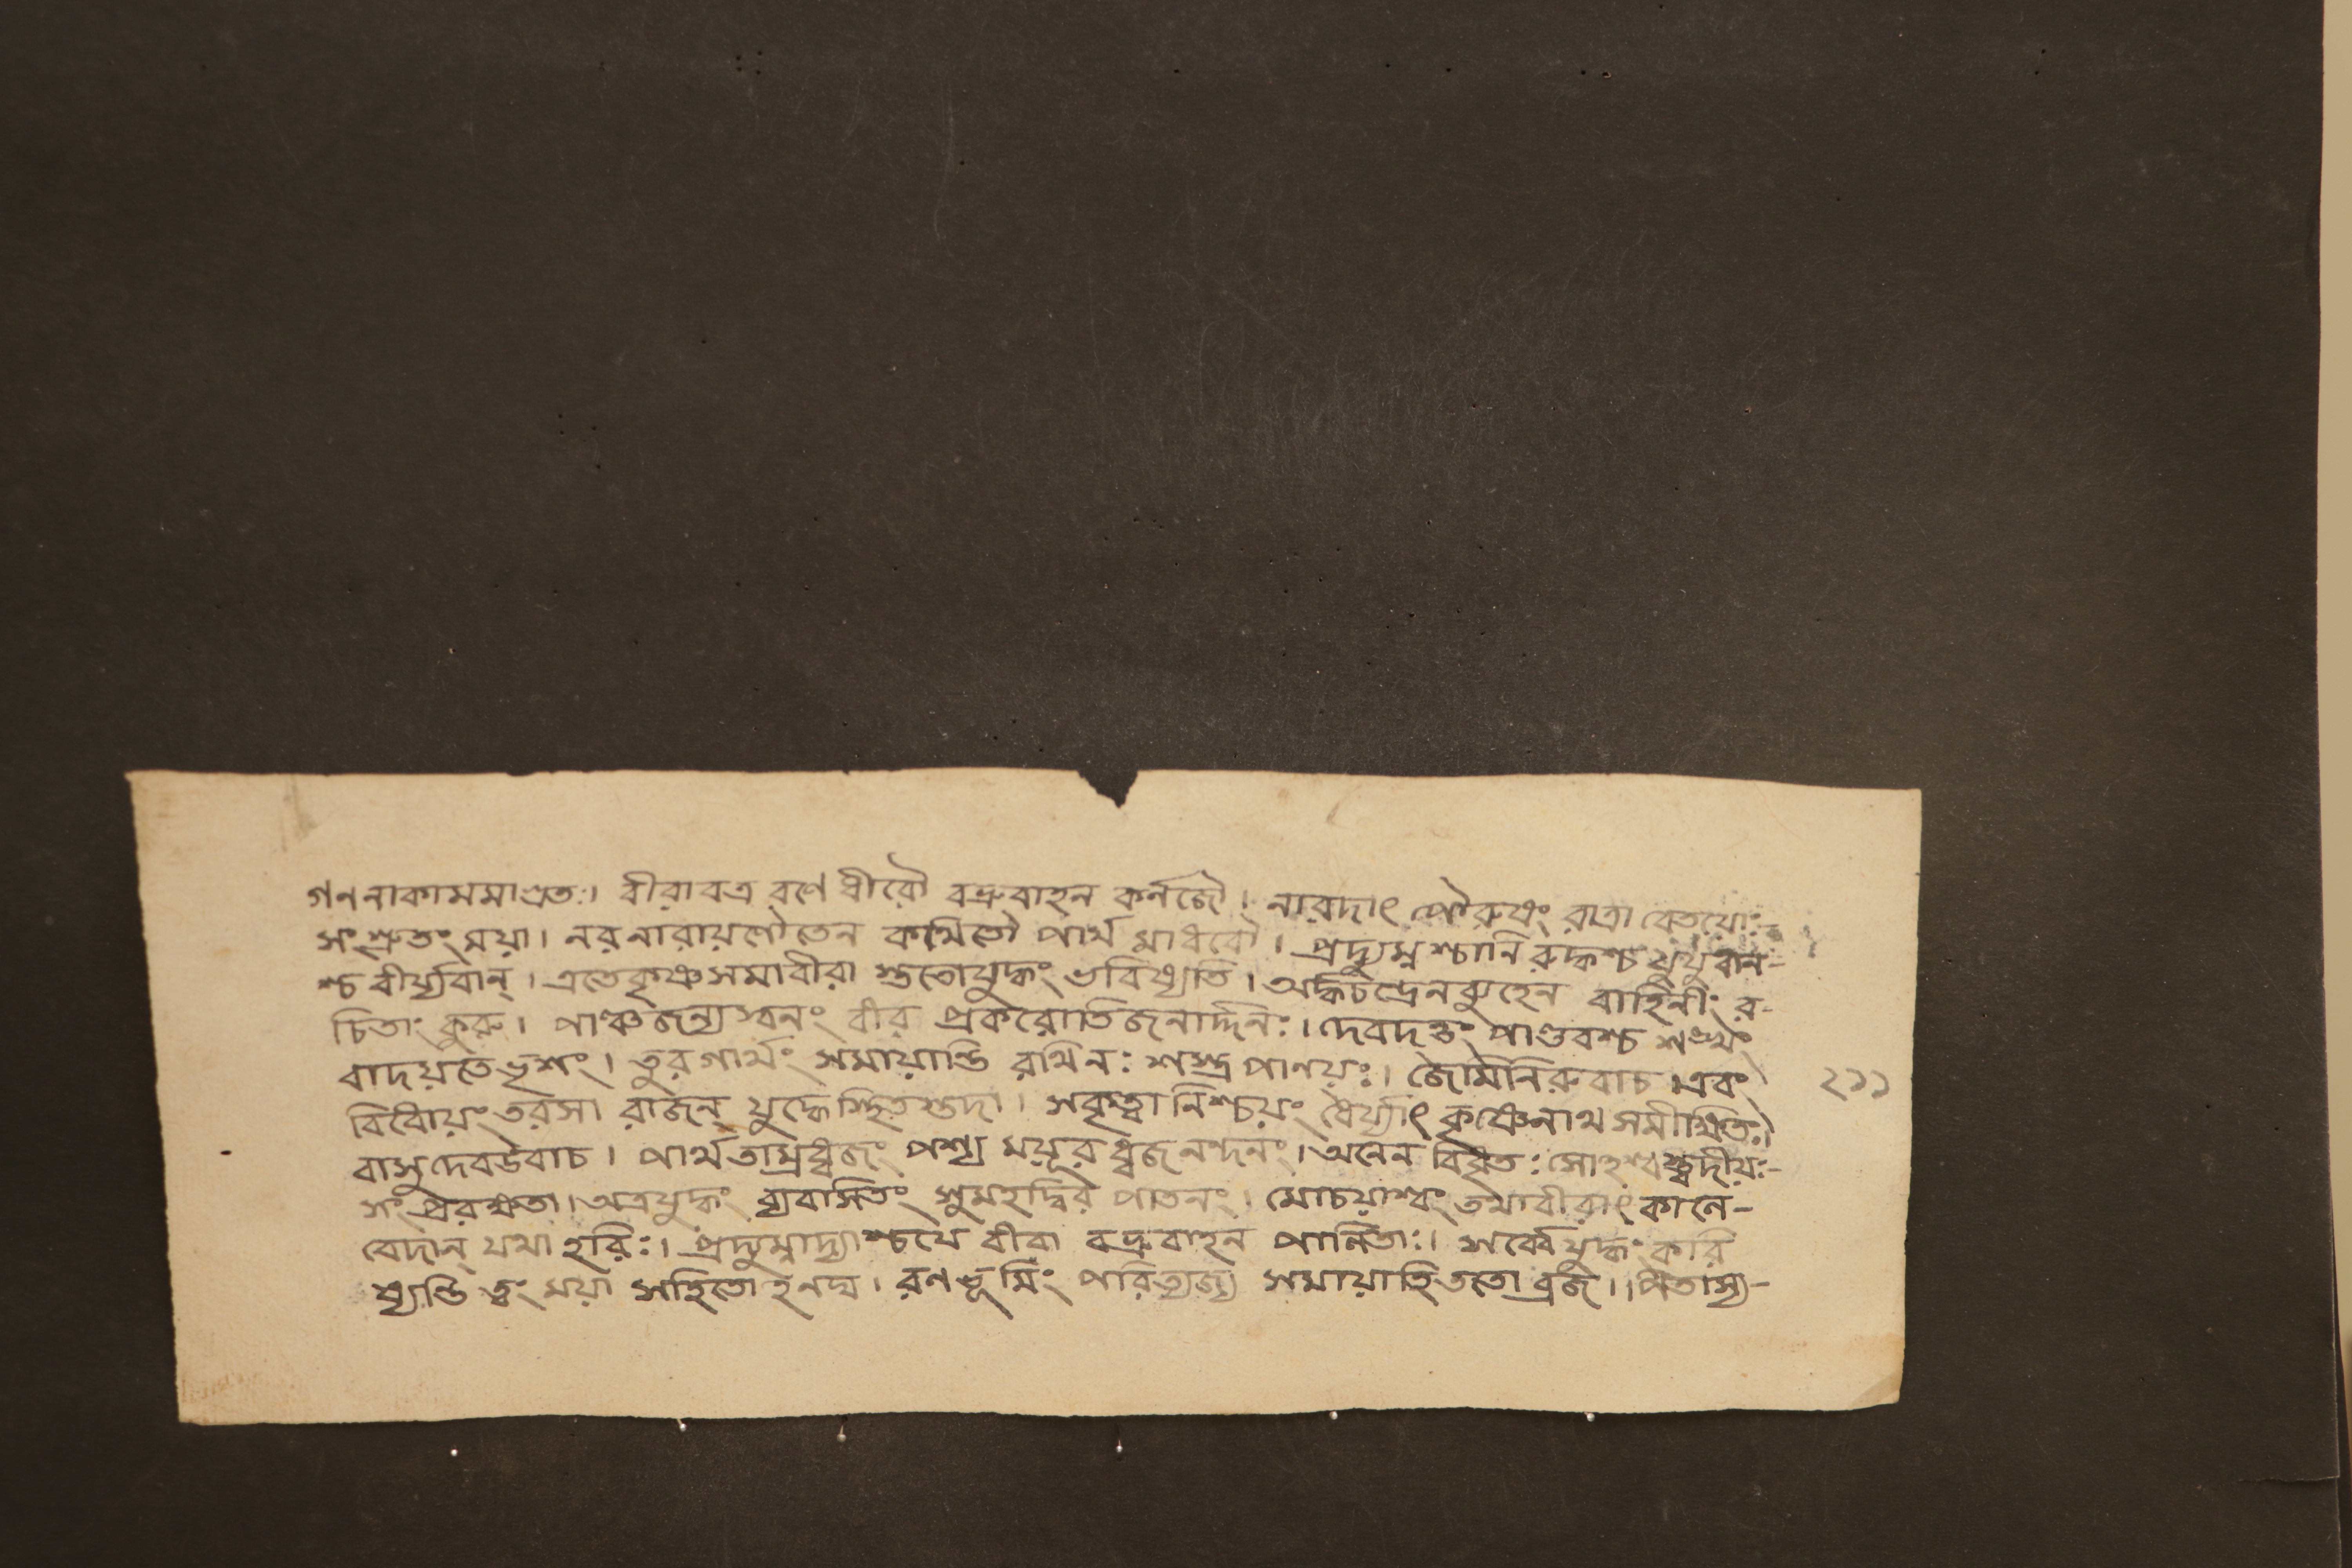 গণনাকামমাশ্রুতঃ। বীরাবত্র রণে ধীরৌ বভ্রুবাহন কর্নজৌ। নারদাৎ পৌরুষং রাত্রা বেতয়োঃ-
সংশ্রুতং ময়া। নরনারায়ণৌতেন কথিতৌ পার্থ মাধবৌ। প্রদ্যুম্নশ্চানিরুদ্ধশ্চ যুযুধান-
শ্চ বীর্য্যবান্। এতেকৃষ্ণসমাবীরা স্ততোযুদ্ধং ভবিষ্যতি। অর্দ্ধচন্দ্রেনব্যুহেন বাহিনীং র-
চিতাং কুরু। পাঞ্চজন্যস্বনং বীর প্রকরোতিজনার্দ্দনঃ। দেবদত্তং পাণ্ডবশ্চ শঙ্খং
বাদয়তেভৃশং। তুরগার্থং সমায়ান্তি রথিনঃ শস্ত্রপাণয়ঃ। জৈমিনিরুবাচ।এবং
বিধোয়ং তরসা রাজন্ যুদ্ধেস্থিতস্তদা। সকৃত্বানিশ্চয়ং ধৈর্য্যাৎ কৃষ্ণেনাথ সমীক্ষিতঃ।
বাসুদেবউবাচ। পার্থতাম্রধ্বজং পশ্য ময়ূরধ্বজনন্দনং। অনেন বিধৃতঃ সোহশ্বস্ত্বদীয়ঃ-
সংপ্ররক্ষতা। অত্রযুদ্ধং ব্যবসিতং সুমহদ্বির পাতনং। মোচয়াশ্বং তথাবীরাং কানে-
বেদান্ যথা হরিঃ। প্রদ্যুম্নাদ্যাশ্চযে বীরা বভ্রুবাহন পালিতাঃ। সর্ব্বেযুদ্ধং করি
ষ্যন্তি ত্বং ময়া সহিতোহনঘ। রণভূমিং পরিত্যজ্য সমায়াহিততো ব্রজ।। পিতাস্য-
২১১